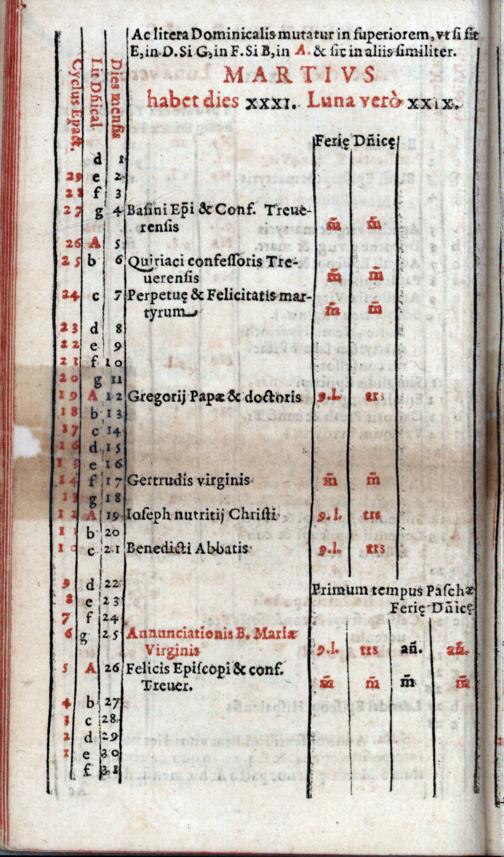 Ac litera Dominicalis mutatur in superiorem, vt si sit
E, in D. Si G, in F. Si B, in A. & sic in aliis similiter.
MARTIVS
habet dies XXXI. Luna verò XXIX.
Cyclus Epact.
Lit Dñical.
Dies mensis
Ferię Dñicę
d 1
29 e 2
28 f 3
27 g 4 Basini Ep̄i & Conf. Treue-
rensis m̄ m̄
26 A 5
25 b 6 Quiriaci confessoris Tre-
uerensis m̄ m̄
24 c 7 Perpetuę & Felicitatis mar-
tyrum m̄ m̄
23 d 8
22 e 9
21 f 10
20 g 11
19 A 12 Gregorij Papæ & doctoris 9.l. trs
18 b 13
17 c 14
16 d 15
15 e 16
14 f 17 Gertrudis virginis m̄ m̄
13 g 18
12 A 19 Ioseph nutritij Christi 9.l. trs
11 b 20
10 c 21 Benedicti Abbatis 9.l. trs
Primum tempus Paschæ
9 d 22
8 e 23 Ferię Dñicę
7 f 24
6 g 25 Annunciationis B. Mariæ
Virginis 9.l. trs añ. añ.
5 A 26 Felicis Episcopi & conf.
Treuer. m̄ m̄ m̄ m̄
4 b 27
3 c 28
2 d 29
1 e 30
f 31